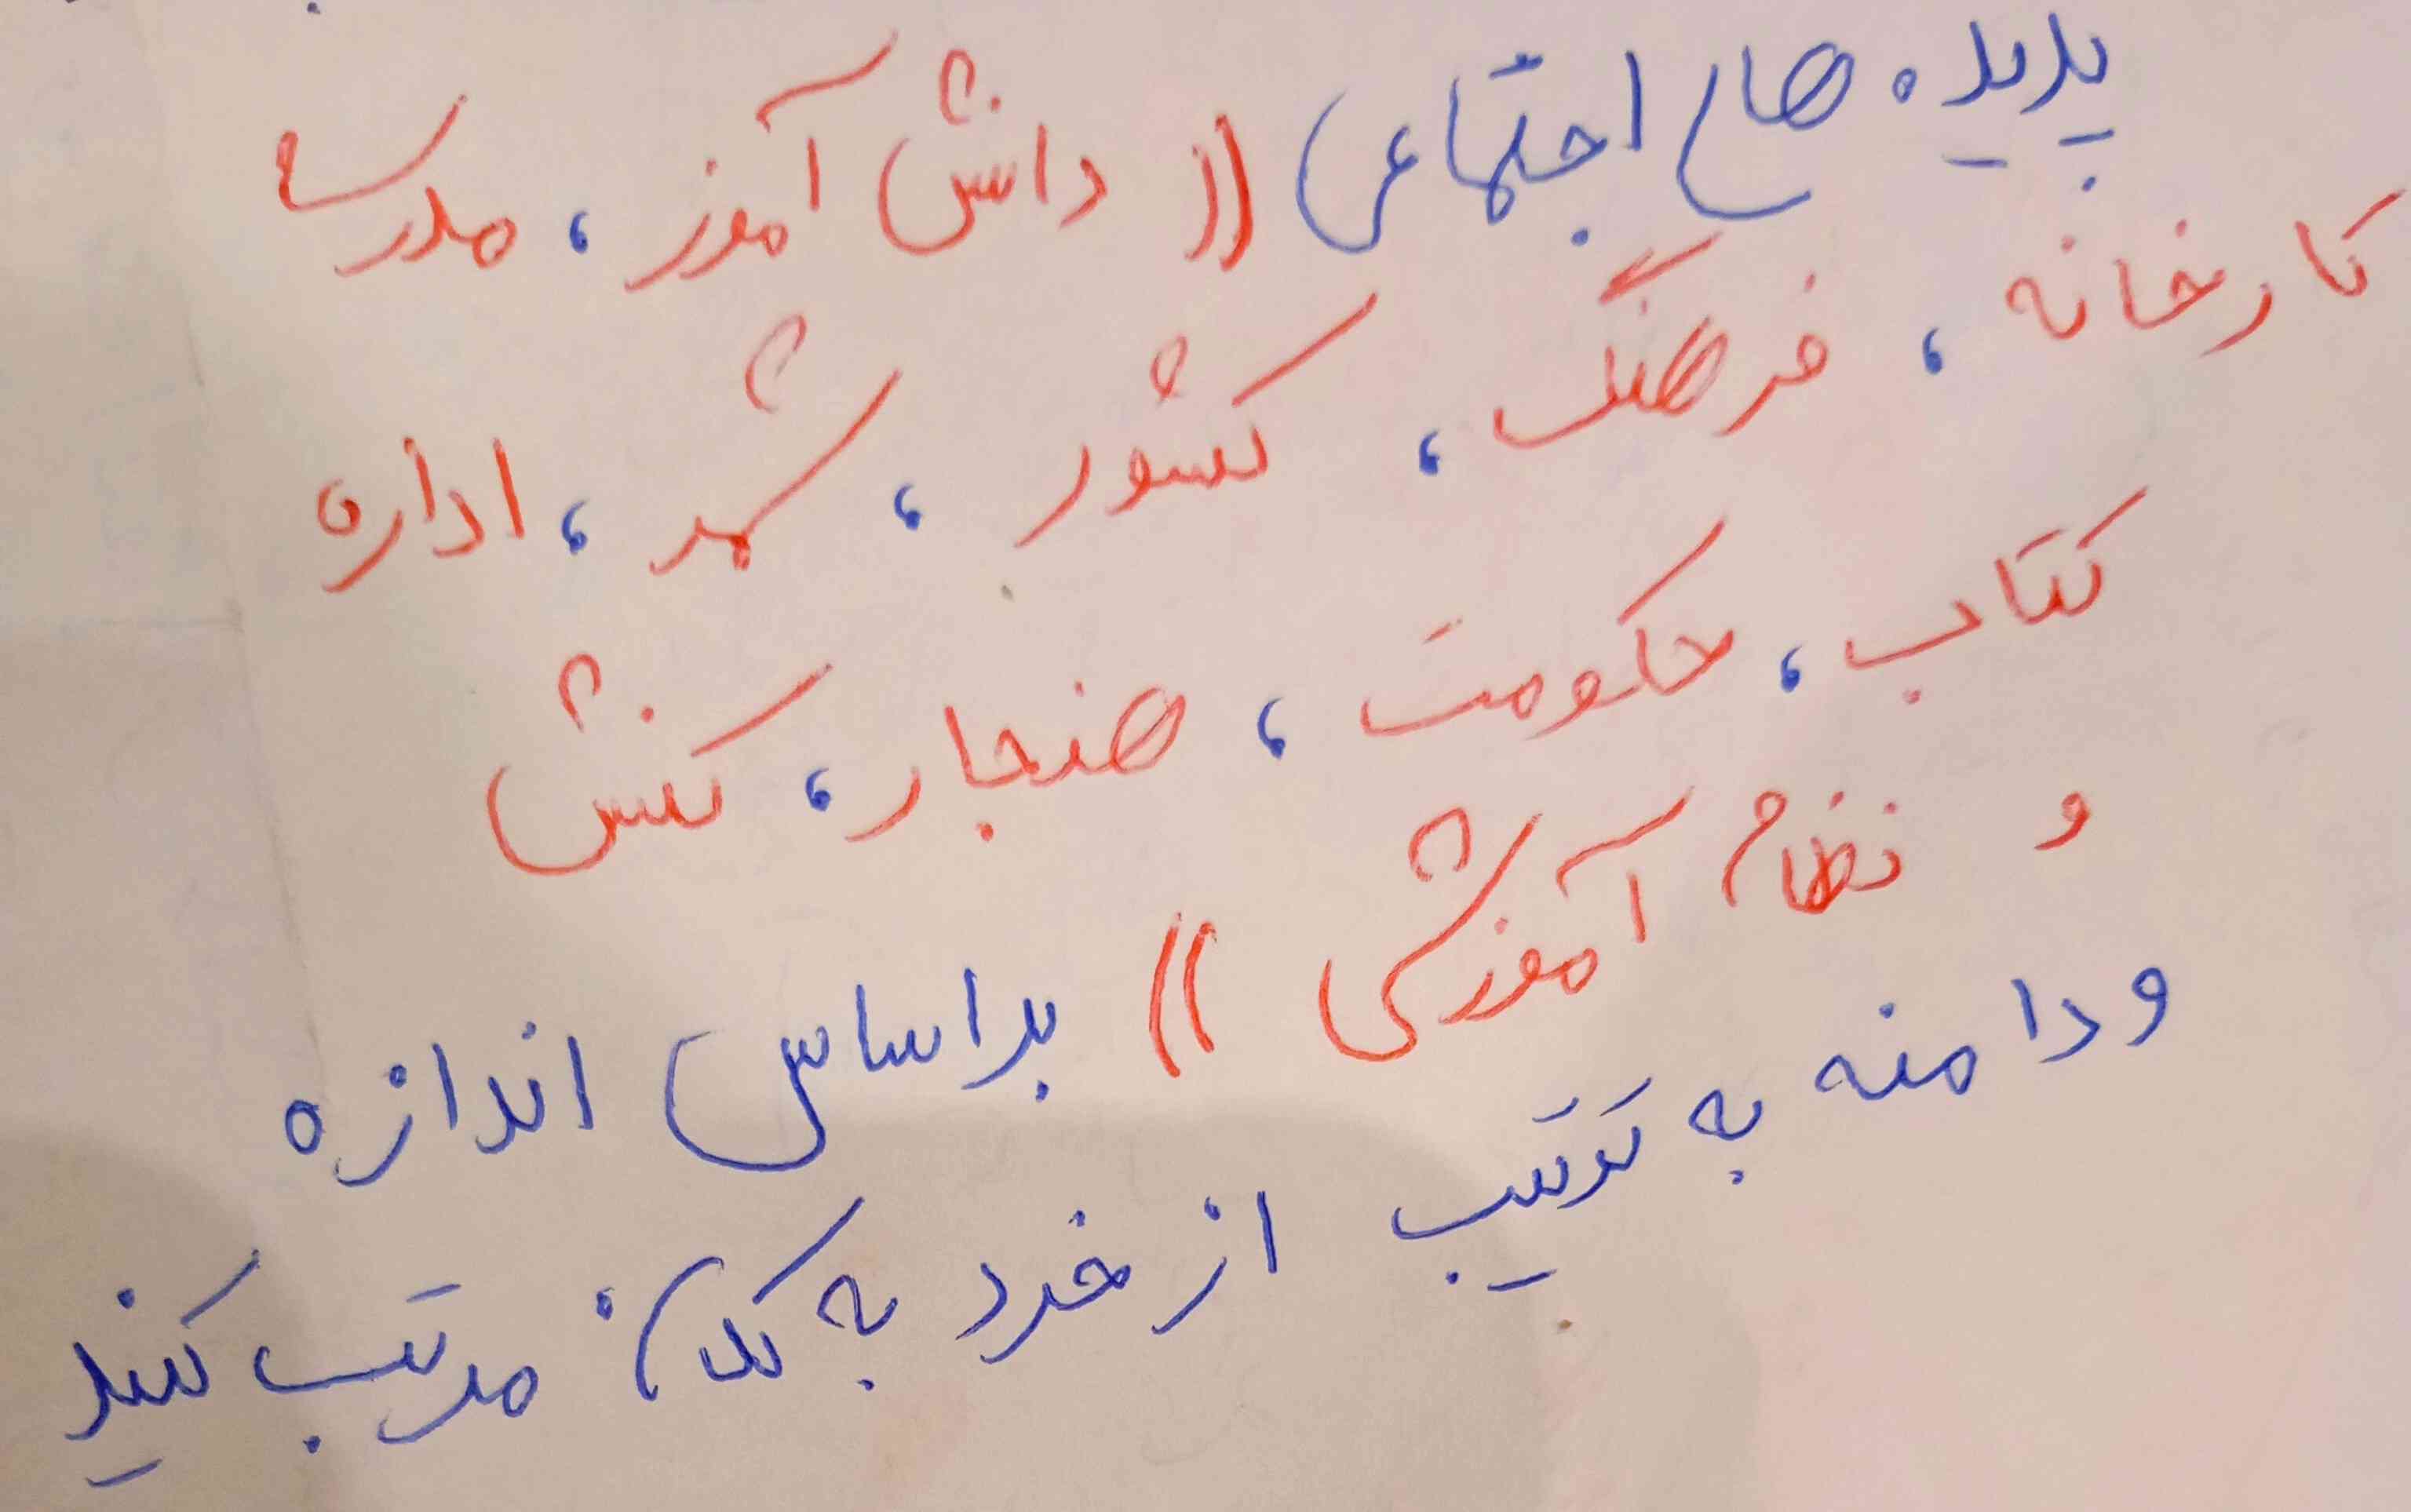 پدیده های اجتماعی (( دانش آموز ، مدرسه
کارخانه ، فرهنگ ، کشور ، شهر ، اداره
کتاب ، حکومت ، هنجار ، کنش
و نظام آموزشی )) براساس اندازه
ودامنه به ترتیب از خرد به کلان مرتب کنید